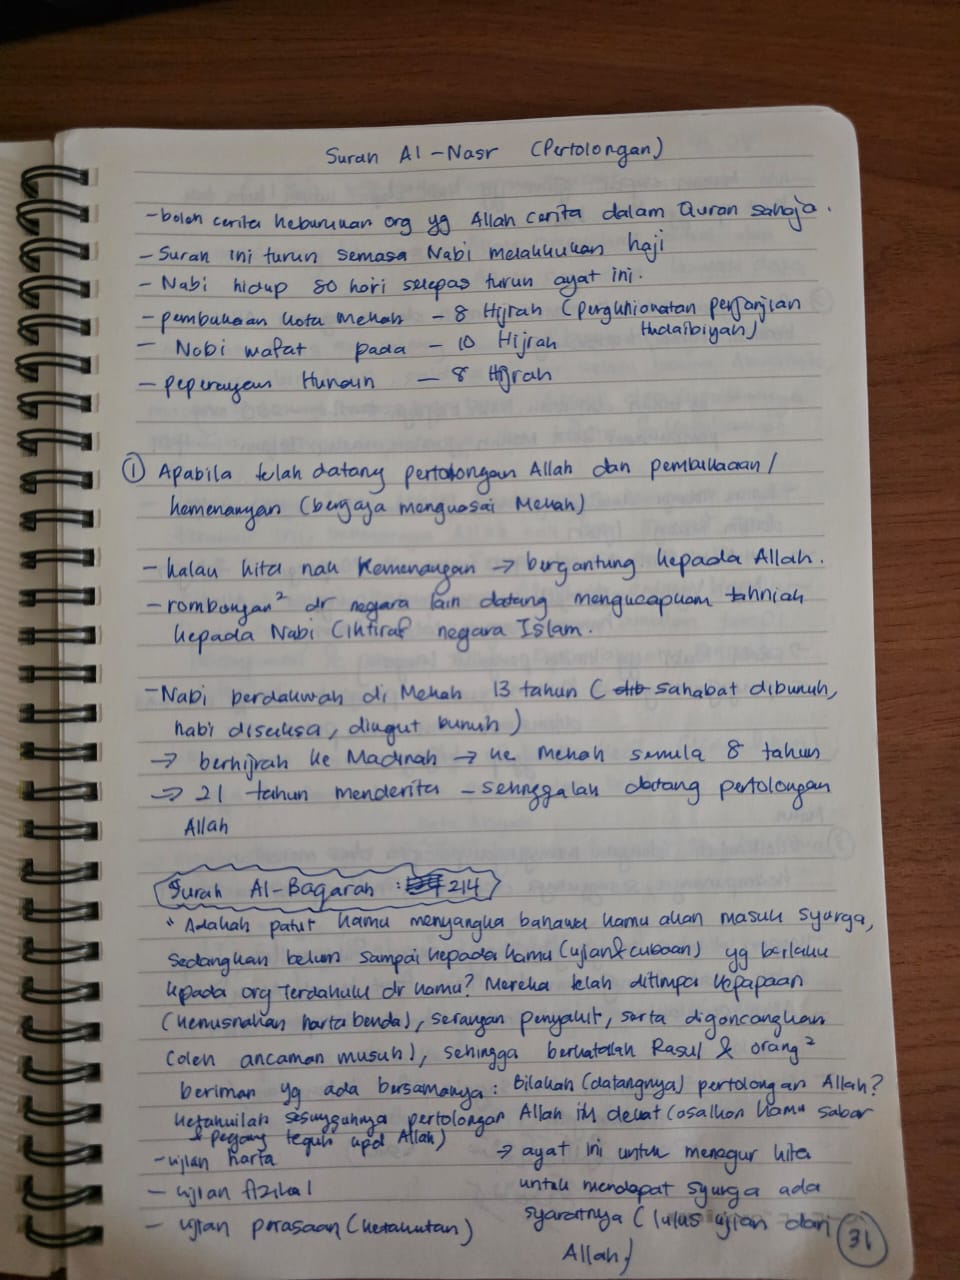 Surah Al-Nasr (Pertolongan)
- boleh cerita keburukan org yg Allah cerita dalam Quran sahaja.
- Surah ini turun semasa Nabi melakkukan haji
- Nabi hidup 80 hari selepas turun ayat ini.
- pembukaan kota Mekah - 8 Hijrah (pengkhianatan perjanjian
Hudaibiyah)
- Nabi wafat pada - 10 Hijrah
- peperangan Hunain - 8 Hijrah
① Apabila telah datang pertolongan Allah dan pembukaan/
kemenangan (berjaya menguasai Mekah)
- kalau kita nak kemenangan → bergantung kepada Allah.
- rombongan² dr negara lain datang mengucapkan tahniah
kepada Nabi (iktiraf negara Islam.
- Nabi berdakwah di Mekah 13 tahun ( sahabat dibunuh,
nabi diseksa, diugut bunuh)
→ berhijrah ke Madinah → ke Mekah semula 8 tahun
→ 21 tahun menderita - sehinggalah datang pertolongan
Allah
Surah Al-Baqarah : 214
" Adakah patut kamu menyangka bahawa kamu akan masuk syurga,
sedangkan belum sampai kepada kamu (ujian & cubaan) yg berlaku
kpada org terdahulu dr kamu? Mereka telah ditimpa kepapaan
(kemusnahan harta benda), serangan penyakit, serta digoncangkan
(oleh ancaman musuh), sehingga berkatalah Rasul & orang²
beriman yg ada bersamanya : Bilakah (datangnya) pertolongan Allah?
ketahuilah sesungguhnya pertolongan Allah itu dekat (asalkan kamu sabar
& pegang teguh kpd Allah)
- ujian harta
- ujian fizikal
- ujian perasaan (ketakutan)
→ ayat ini untuk menegur kita
untuk mendapat syurga ada
syaratnya (lulus ujian dari
Allah)
31